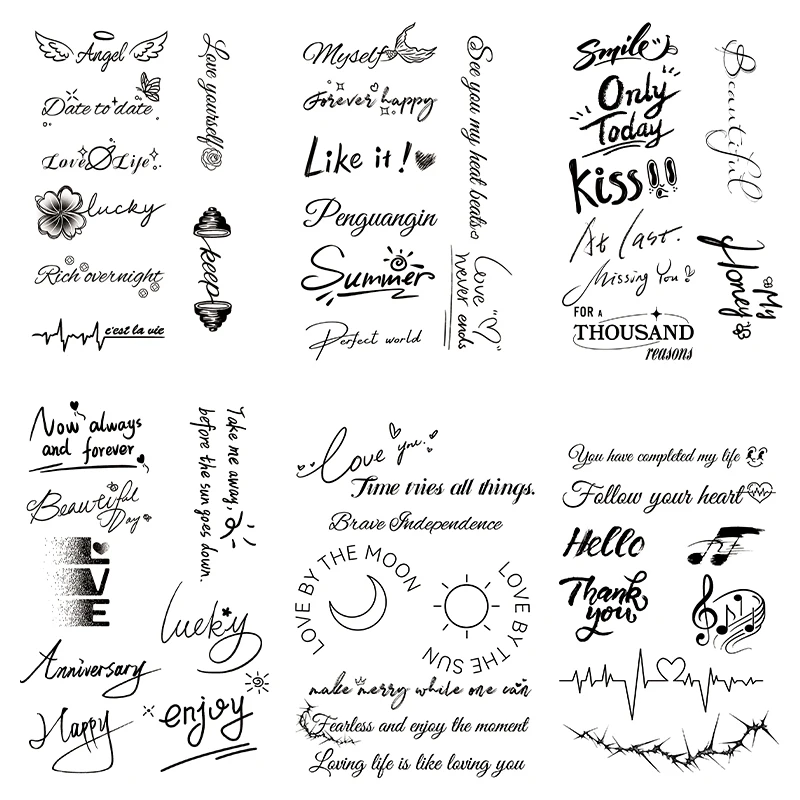 Angel
Date to date
Love Life
lucky
Rich overnight
c'est la vie
Love yourself
keep
Myself
Forever happy
Like it!
Penguangin
Summer
Perfect world
See you my heat beats
Love
never ends
Smile
Only
Today
Kiss!!
At last.
Missing You?
FOR A
THOUSAND
reasons
Beautiful
My
Honey
Now always
and forever
Beautiful
Day
LOVE
Anniversary
Happy
Take me away,
before the sun goes down.
lucky
enjoy
Love you.
Time tries all things.
Brave Independence
LOVE BY THE MOON
LOVE BY THE SUN
make merry while one can
Fearless and enjoy the moment
Loving life is like loving you
You have completed my life
Follow your heart
Hello
Thank
you